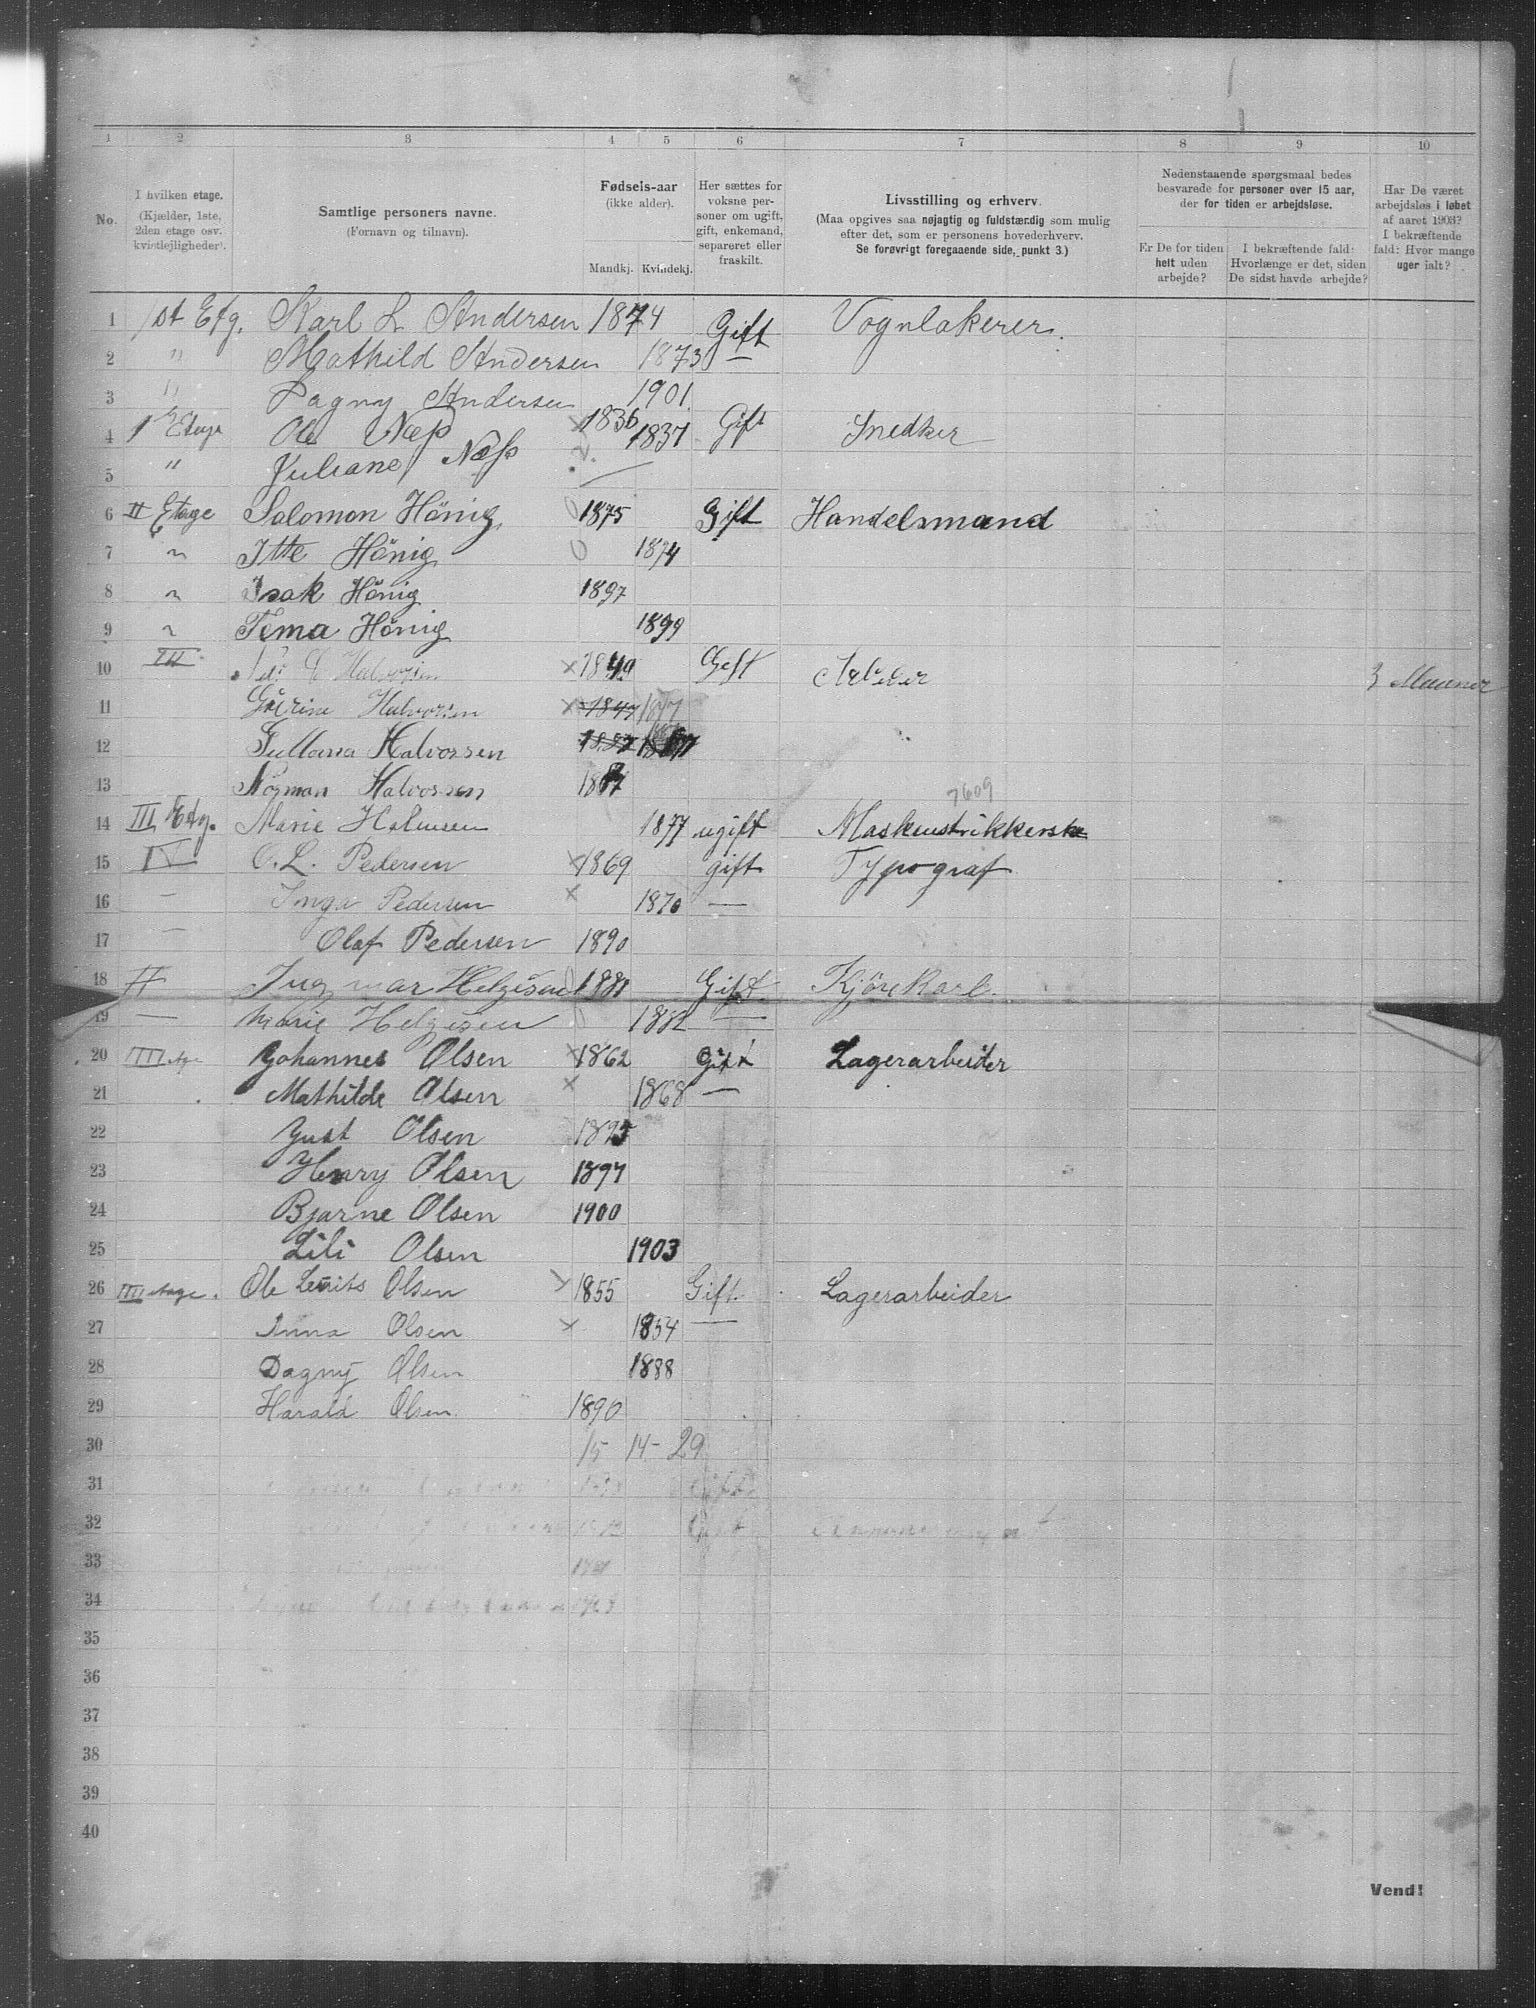 1 2 3 4 5 6 7 8 9 10
No.
I hvilken etage.
(Kjælder, 1ste,
2den etage osv.
kvistlejligheder).
Samtlige personers navne.
(Fornavn og tilnavn).
Fødsels-aar
(ikke alder).
Mandkj. Kvindekj.
Her sættes for
voksne per-
soner om ugift,
gift, enkemand,
separeret eller
fraskilt.
Livsstilling og erhverv.
(Maa opgives saa nøjagtig og fuldstændig som mulig
efter det, som er personens hovederhverv.
Se forøvrigt foregaaende side, punkt 3.)
Nedenstaaende spørgsmaal bedes
besvarede for personer over 15 aar,
der for tiden er arbejdsløse.
Er De for tiden
helt uden
arbejde?
I bekræftende fald:
Hvorlænge er det, siden
De sidst havde arbejde?
Har De været
arbejdsløs i løbet
af aaret 1903?
I bekræftende
fald: Hvor mange
uger ialt?
1 1st Etg. Karl L. Andersen 1874 Gift Vognlakerer.
2 " Mathild Andersen 1873 —
3 " Dagny Andersen 1901
4 1 Etage Ole Næss × 1836 1837 Gift Snedker
5 " Juliane Næss
6 II Etage Salomon Hönig 0 1875 Gift Handelsmand
7 " Itte Hönig 0 1874
8 " Isak Hönig 1897
9 " Tema Hönig 1899
10 III Halvorsen × 1849 Gift Arbeider 3 Maaneder
11 Halvorsen × 1847 1877
12 Gullana Halvorsen
13 Halvorsen
7609
14 III Etg. Marie Halvorsen 1877 ugift Maskinstrikkerske
15 IV O. L. Pedersen × 1869 gift Typograf
16 — Inga Pedersen × 1870 —
17 — Olaf Pedersen 1890
18 Ingmar Helgesen 0 1881 Gift Kjörekarl.
19 — Marie Helgesen 0 1882 —
20 IIII Etge Johannes Olsen × 1862 Gift Lagerarbeider
21 Mathilde Olsen × 1868 —
22 Just Olsen 1895
23 Henry Olsen 1897
24 Bjarne Olsen 1900
25 Lili Olsen 1903
26 IIII etage. Ole Lauits Olsen × 1855 Gift. Lagerarbeider
27 Anna Olsen × 1854 —
28 Dagny Olsen 1888
29 Harald Olsen 1890
30 15 14 - 29
31
32
33
34
35
36
37
38
39
40
Vend!